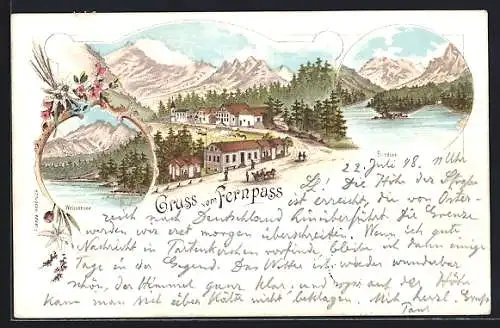 Weissensee
Gruss vom Fernpass
22. Juli 98. 11 Uhr
L! Die Höhe der
ist erreicht, die von Oster-
reich nach Deutschland hinüberführt. Die Grenze
werden wir erst morgen überschreiten. Wenn ich gute
Nachricht in Partenkirchen vorfinde, bleibe ich dann einige
Tage in der Gegend. Das Wetter ist wieder wunderbar
schön, der Himmel ganz klar, und sogar auf der Höhe
kann man sich über Kälte nicht beklagen. Mit herzl. Gruß
Paul